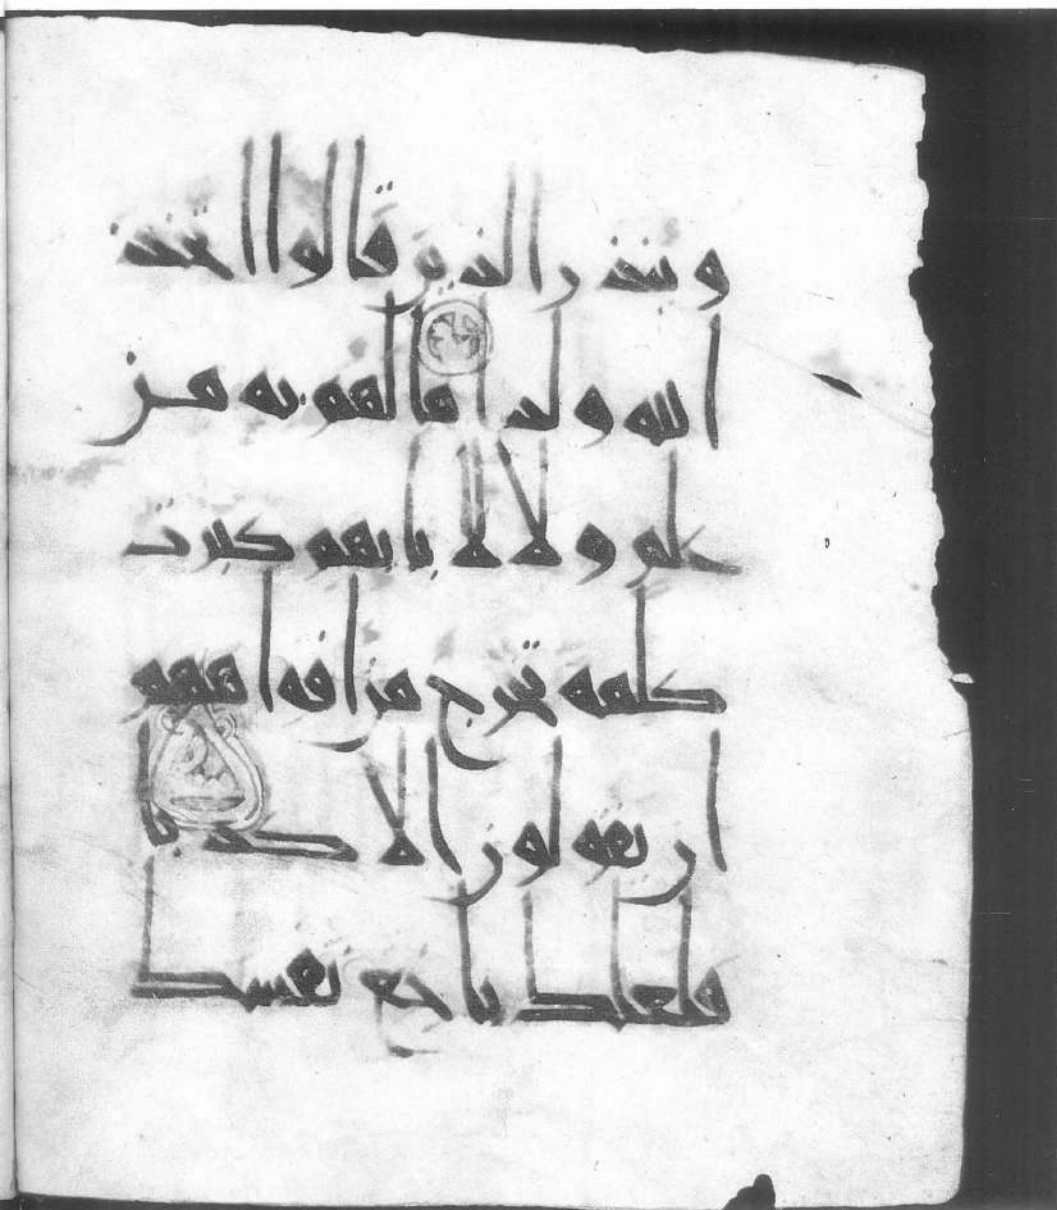 و ينذر الذين قالوا اتخذ
الله ولدا ما لهم به من
علم ولا لابايهم كبرت
كلمة تخرج من افواههم
ان يقولون الا كذبا
فلعلك باخع نفسك